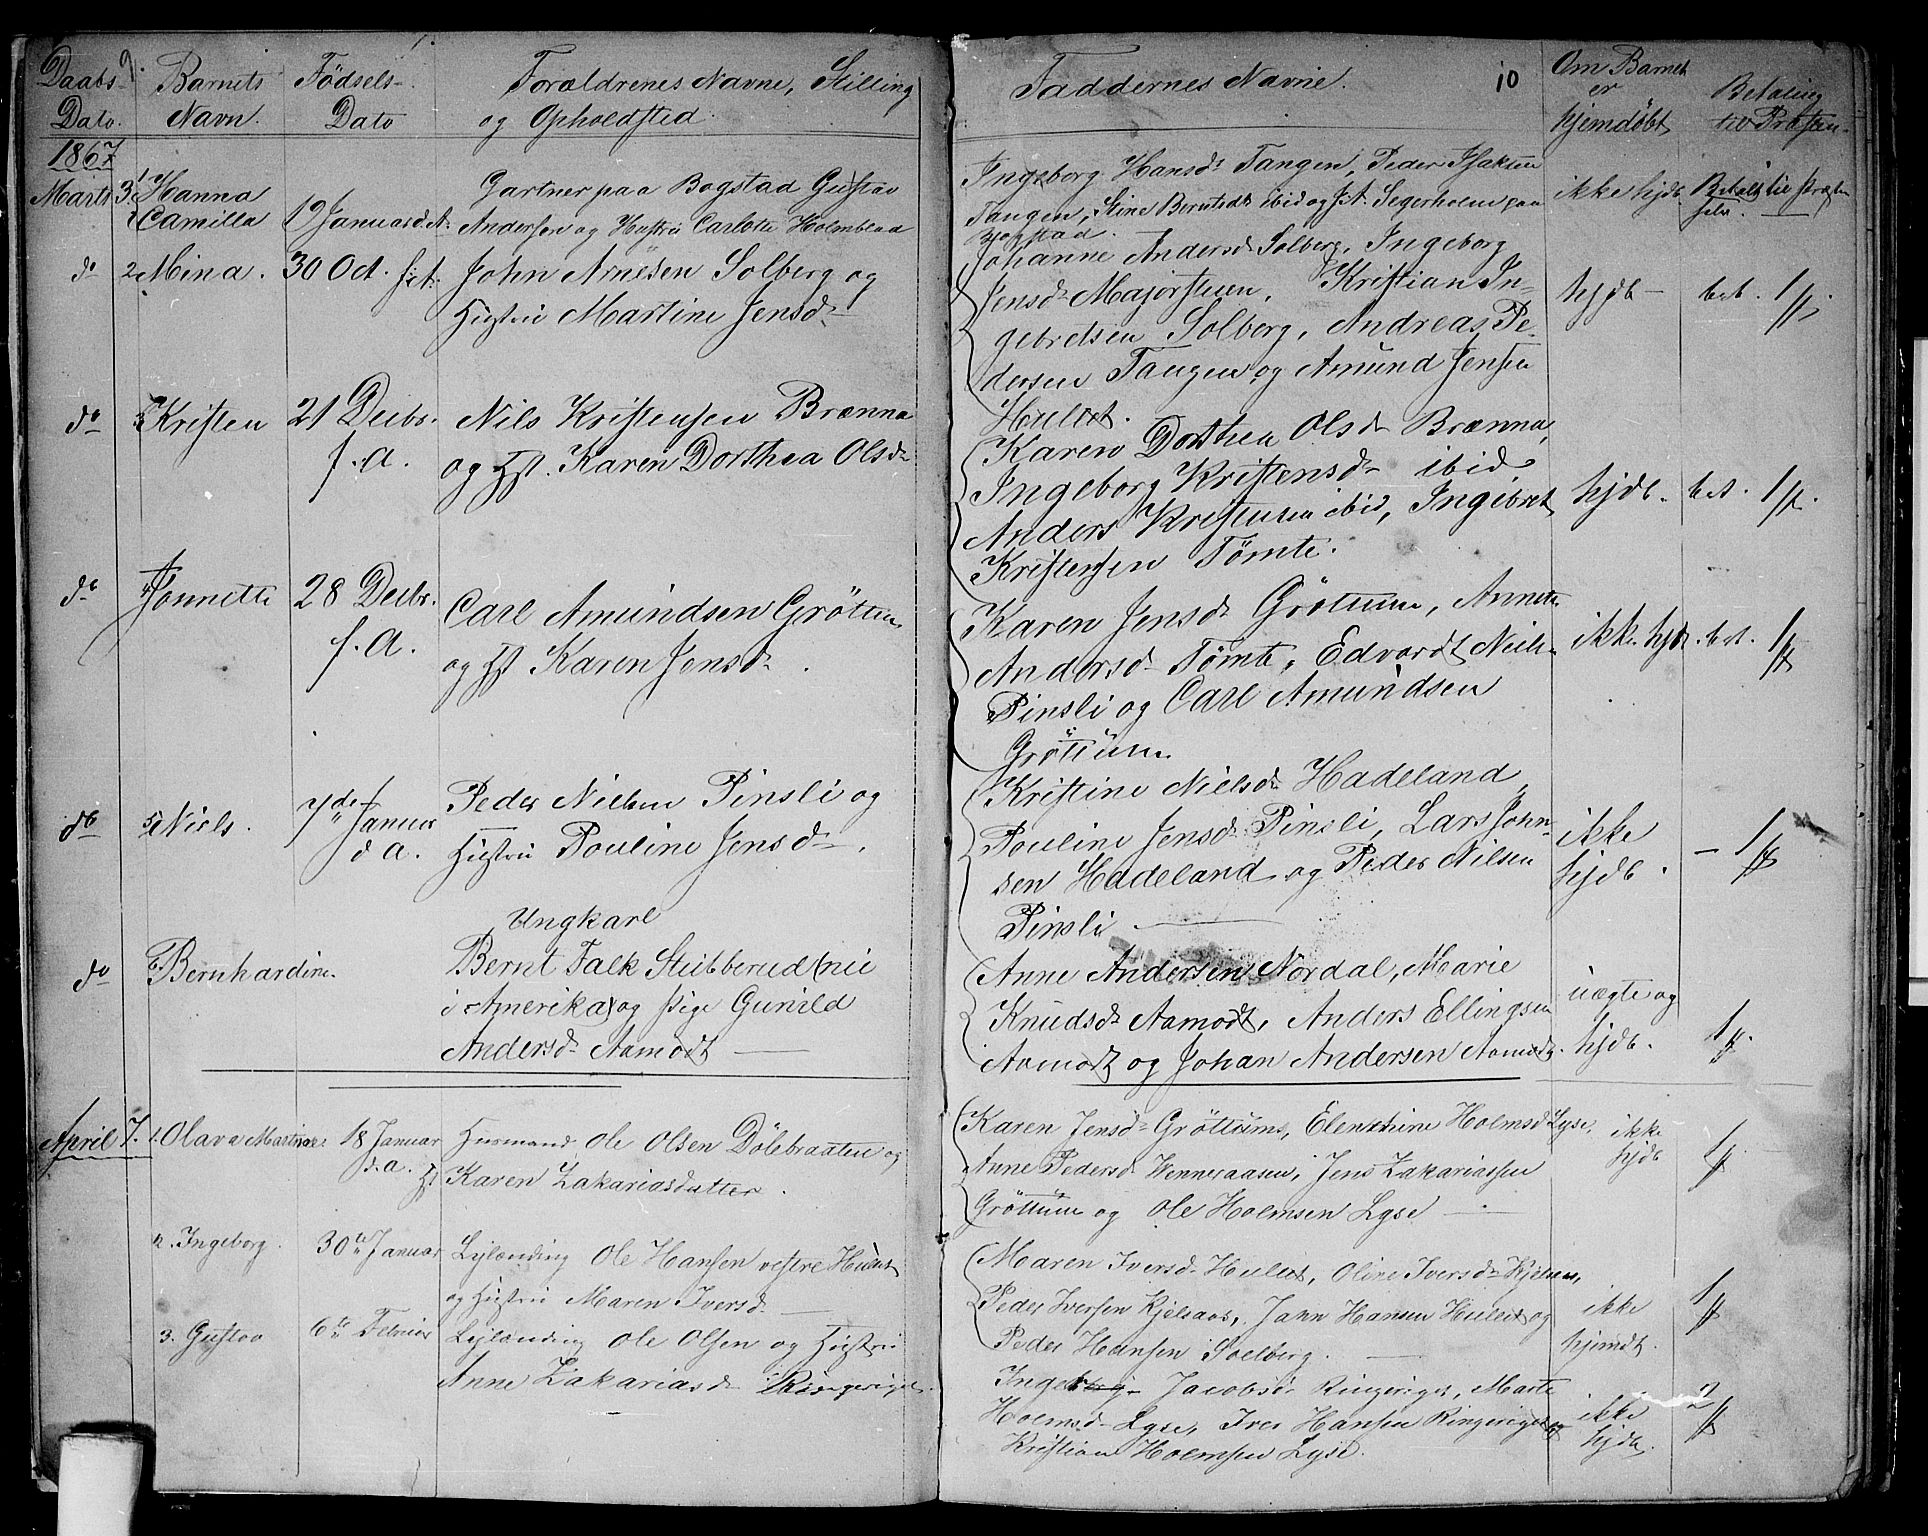 Daabs- Dato.
Barnets Navn.
Fødsels- Dato
Forældrenes Navne, Stilling
og Opholdsted.
1867
Marts 3. 1 Hanna
Camilla
19 Januar d. A.
Gartner paa Bogstad Gustav
Andersen og Hustru Carlotte Holmblad
do 2 Mina. 30 Oct. f. A. John Arnesen Solberg og
Hustru Martine Jensd.
do 3 Kristen 21 Decbr. Nils Kristensen Brænna
f. A. og Hst. Karen Dorthea Olsd.
do 4 Jonnette 28 Decbr. Carl Amundsen Gröttum
f. A. og Hst Karen Jensd.
do 5 Niels. 7de Januar Peder Nielsen Pinsli og
d A. Hustru Pouline Jensd.
Ungkarl
do 6 Bernhardine. Bernt Falk Stubberud (nu
i Amerika) og Pige Gunild
Andersd. Aamodt
April 7. 1. Olava Martine 18 Januar Husmand Ole Olsen Dölebraaten og
d. a. Hst Karen Zakariasdatter.
2. Ingeborg. 30te Januar Leilænding Ole Hansen vestre Hulet
og Hustru Maren Iversd.
3. Gustav 6te Februar Leilænding Ole Olsen og Hustru
Anne Zakariasd. Ringeriget.
Faddernes Navne. 10
Om Barnet er hjemdøbt
Betaling til Præsten.
Ingeborg Hansd. Tangen, Peder Isaksen
Tangen, Stine Berntsd. ibid og Segerholm paa
Bogstad.
ikke hjdb. Betalt til Præsten selv.
Johanne Andersd. Solberg, Ingeborg
Jensd. Majorstuen, Kristian In-
gebretsen Solberg, Andreas Pe-
dersen Tangen og Amund Jensen
Hulet.
hjdb bet. 1
Karen Dorthea Olsd. Brænna,
Ingeborg Kristensd. ibid,
Anders Kristensen ibid, Ingebret
Kristensen Tömte.
hjdb. bet. 1
Karen Jensd. Gröttum, Annette
Andersd. Tömte, Edvardt Niels.
Pinsli og Carl Amundsen
Gröttum
ikke hjdb. bet. 1
Kristine Nielsd. Hadeland,
Pouline Jensd. Pinsli, Lars John-
sen Hadeland og Peder Nilsen
Pinsli
ikke hjdb. 1
Anne Andersen Nordal, Marie
Knudsd. Aamodt, Anders Ellingsen
Aamodt og Johan Andersen Aamodt.
uægte og hjdb. 1
Karen Jensd. Gröttums, Elenthine Holmsd. Lyse,
Anne Pedersd. Wenneraasen, Jens Zakariassen
Gröttum og Ole Holmsen Lyse
ikke hjdb 1
Maren Iversd. Hulet, Oline Iversd. Kjelsaas,
Peder Iversen Kjelsaas, Jahn Hansen Hulet og
Peder Hansen Solberg.
ikke hjemdt. 1
Ingeborg Jacobsd. Ringeriget, Marte
Holmsd. Lyse, Iver Hansen Ringeriget og
Kristian Holmsen Lyse.
ikke hjdb. 2